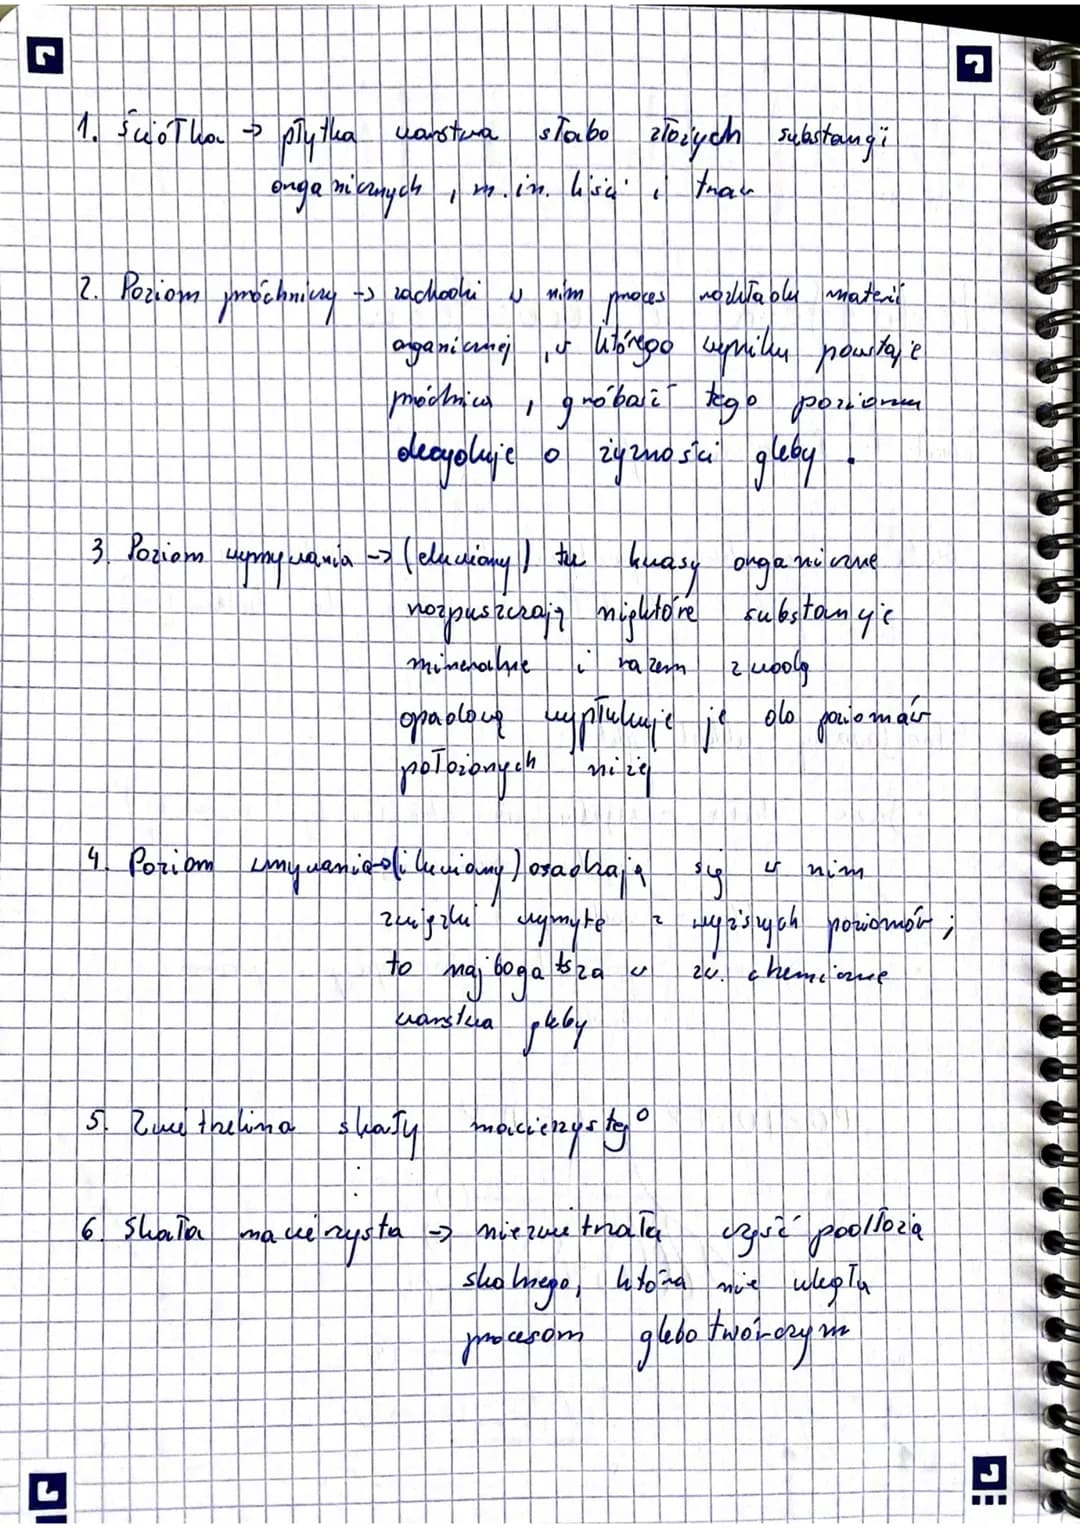 1. Ściółka → płytka warstwa słabo złożych substancji
organicznych, m.in. liści i traw
2. Poziom próchniczy → zachodzi w nim proces rozkładu materii
organicznej, w którego wyniku powstaje
próchnica, gróbość tego poziomu
decyduje o żyzności gleby.
3. Poziom wymywania → (eluwialny) tu kwasy organiczne
rozpuszczają niektóre substancje
mineralne i razem z wodą
opadową wypłukuje je do poziomów
położonych niżej
4. Poziom wmywania → (iluwialny) osadzają się w nim
związki wymyte z wyższych poziomów;
to najbogatsza w zw. chemiczne
warstwa gleby
5. Zwietrzelina skały macierzystej
6. Skała macierzysta → niezwietrzała część podłoża
skalnego, która nie uległa
procesom glebotwórczym